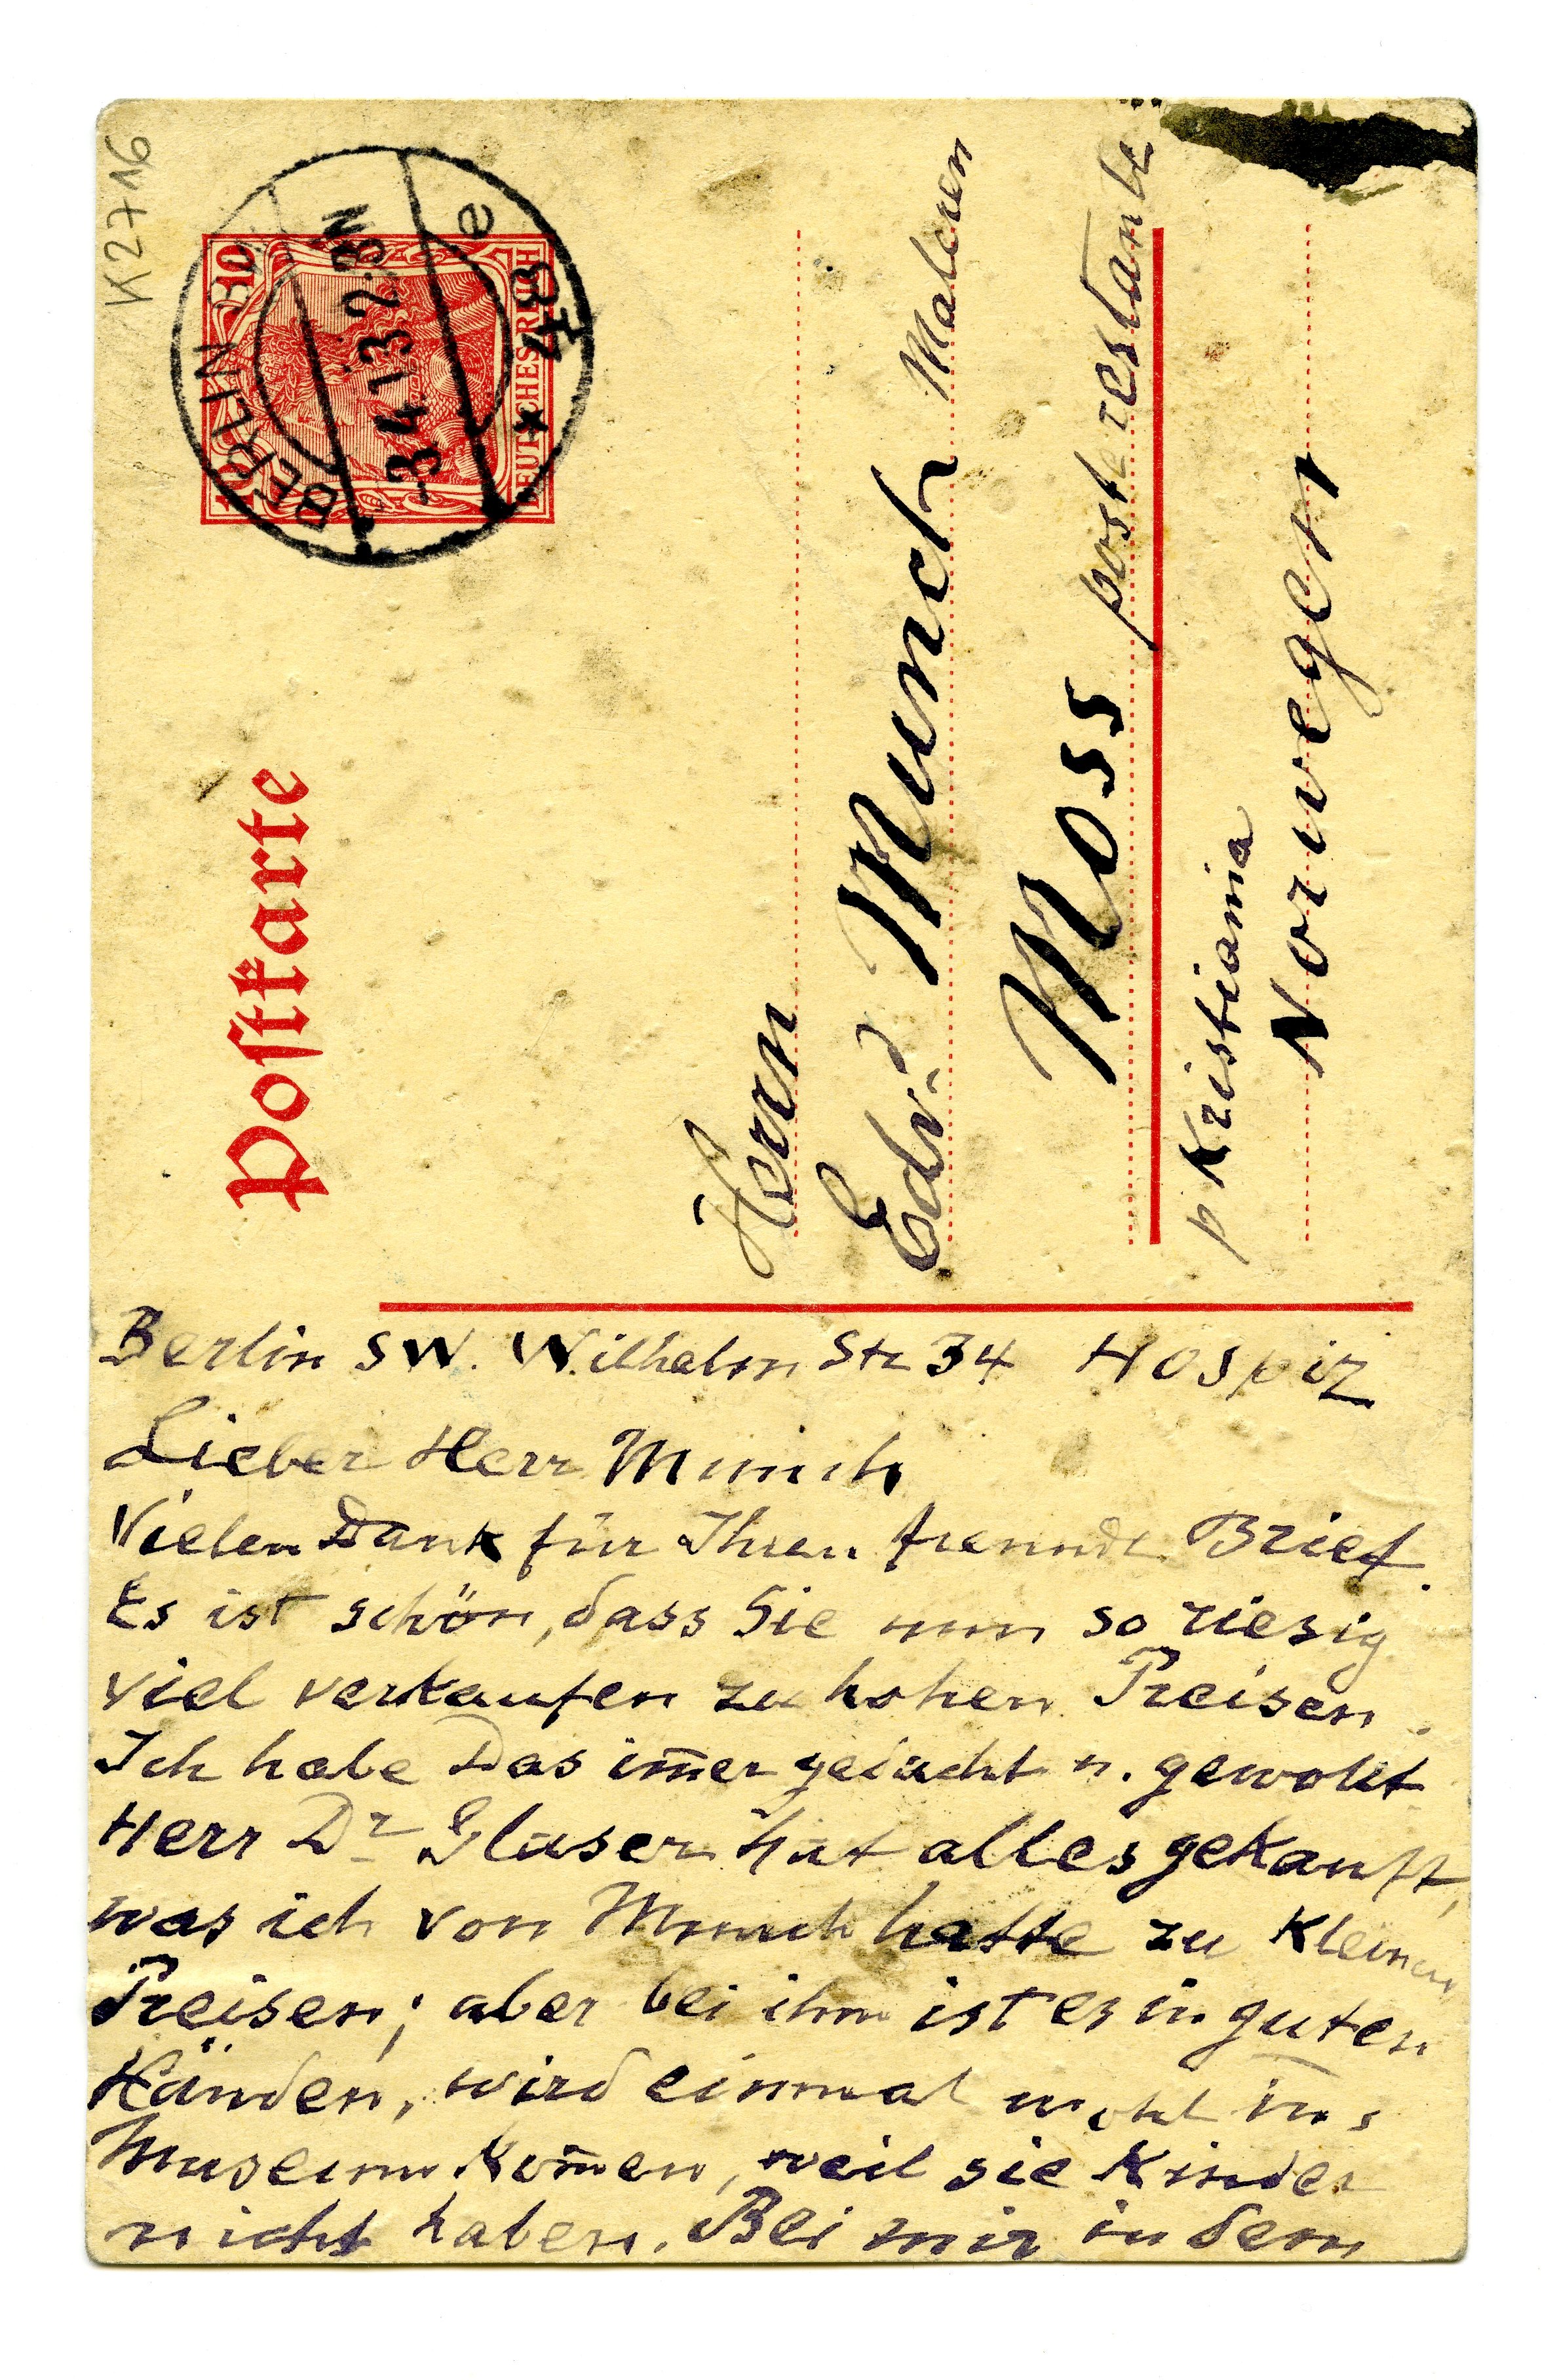 K2716
BERLIN
-3.4.13 2-3N
e
* 48
10 10
DEUTSCHES REICH
Postkarte
Herrn
Edv. Munch Maleren
Moss poste restante
p Kristiania
Norwegen
Berlin SW. Wilhelm Str 34 Hospiz
Lieber Herr Munch
Vielen Dank für Ihren freundl. Brief.
Es ist schön, dass Sie nun so riesig
viel verkaufen zu hohen Preisen.
Ich habe Das im̄er gedacht u. gewollt
Herr Dr Glaser hat alles gekauft,
was ich von Munch hatte zu kleinen
Preisen; aber bei ihm ist es in guten
Händen, wird einmal wohl ins
Museum kom̄en, weil sie Kinder
nicht haben. Bei mir in dem